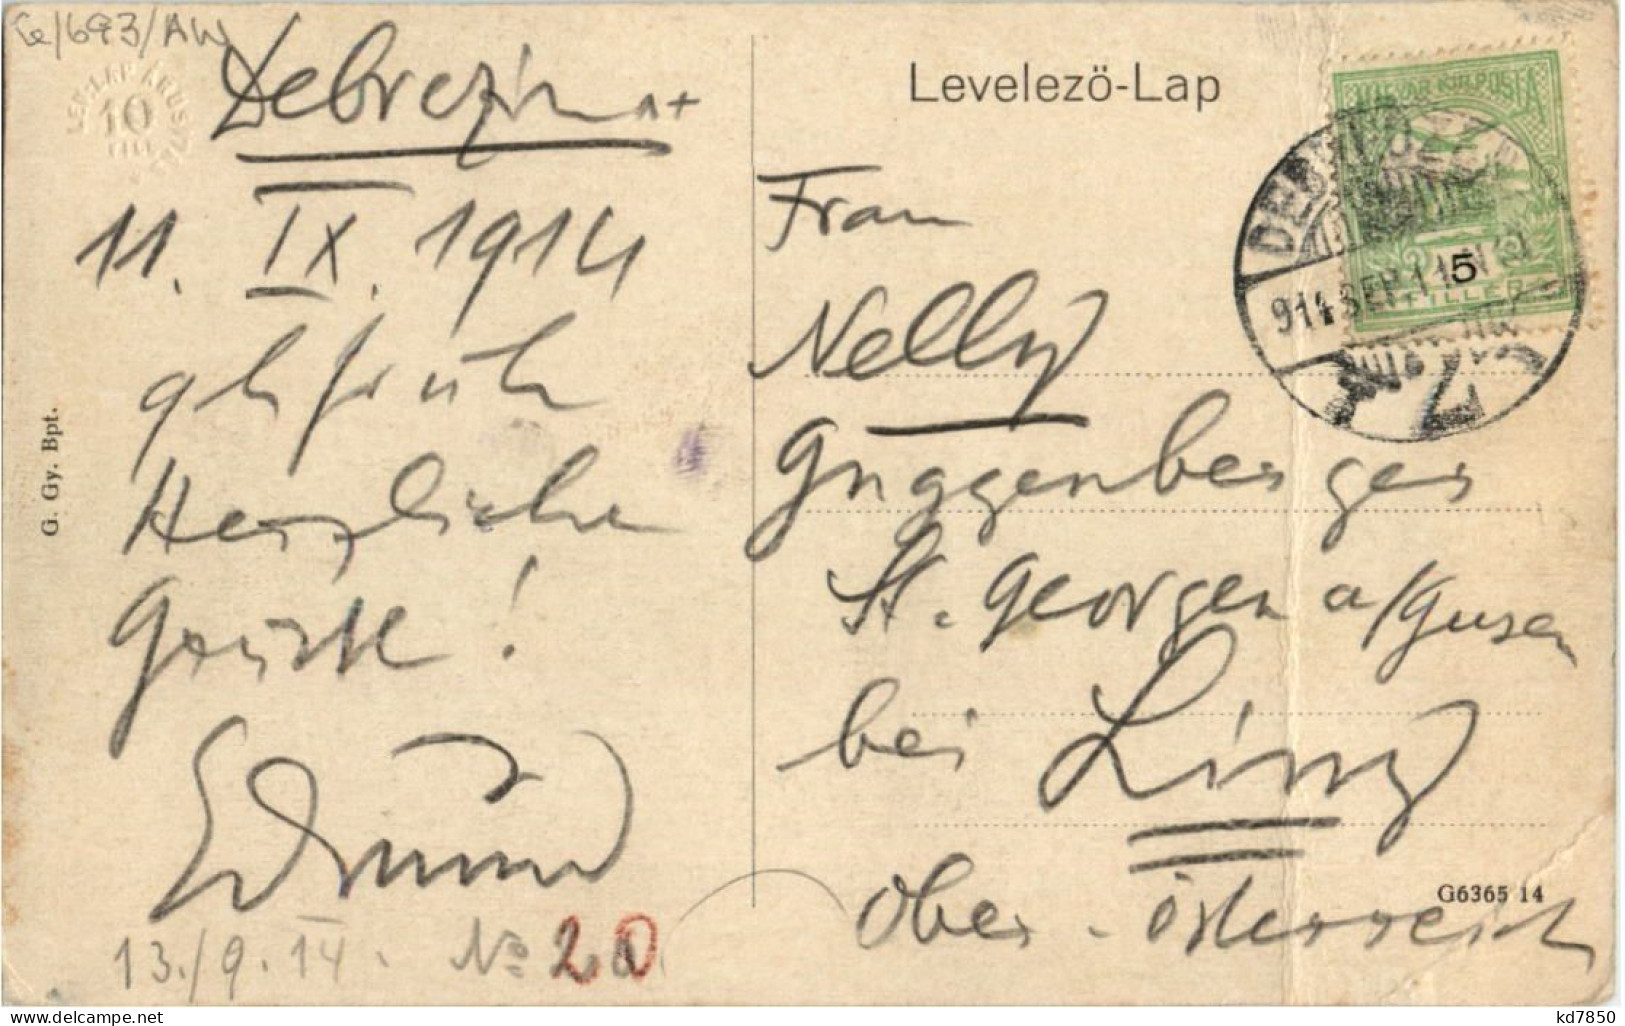 Ce/693/AW
LEV. LAP ÁRUSÍT.
10
FILL
Debrezin
11. IX. 1914
Herzliche
Grüsse!
Edmund
13./9. 14. No 20
G. Gy. Bpt.
Levelező-Lap
MAGYAR KIR. POSTA
5
FILLER
914 SEP 11
Frau
Nelly
Guggenberger
St. Georgen a/Gusen
bei Linz
Ober-österreich
G6365 14
kd7850